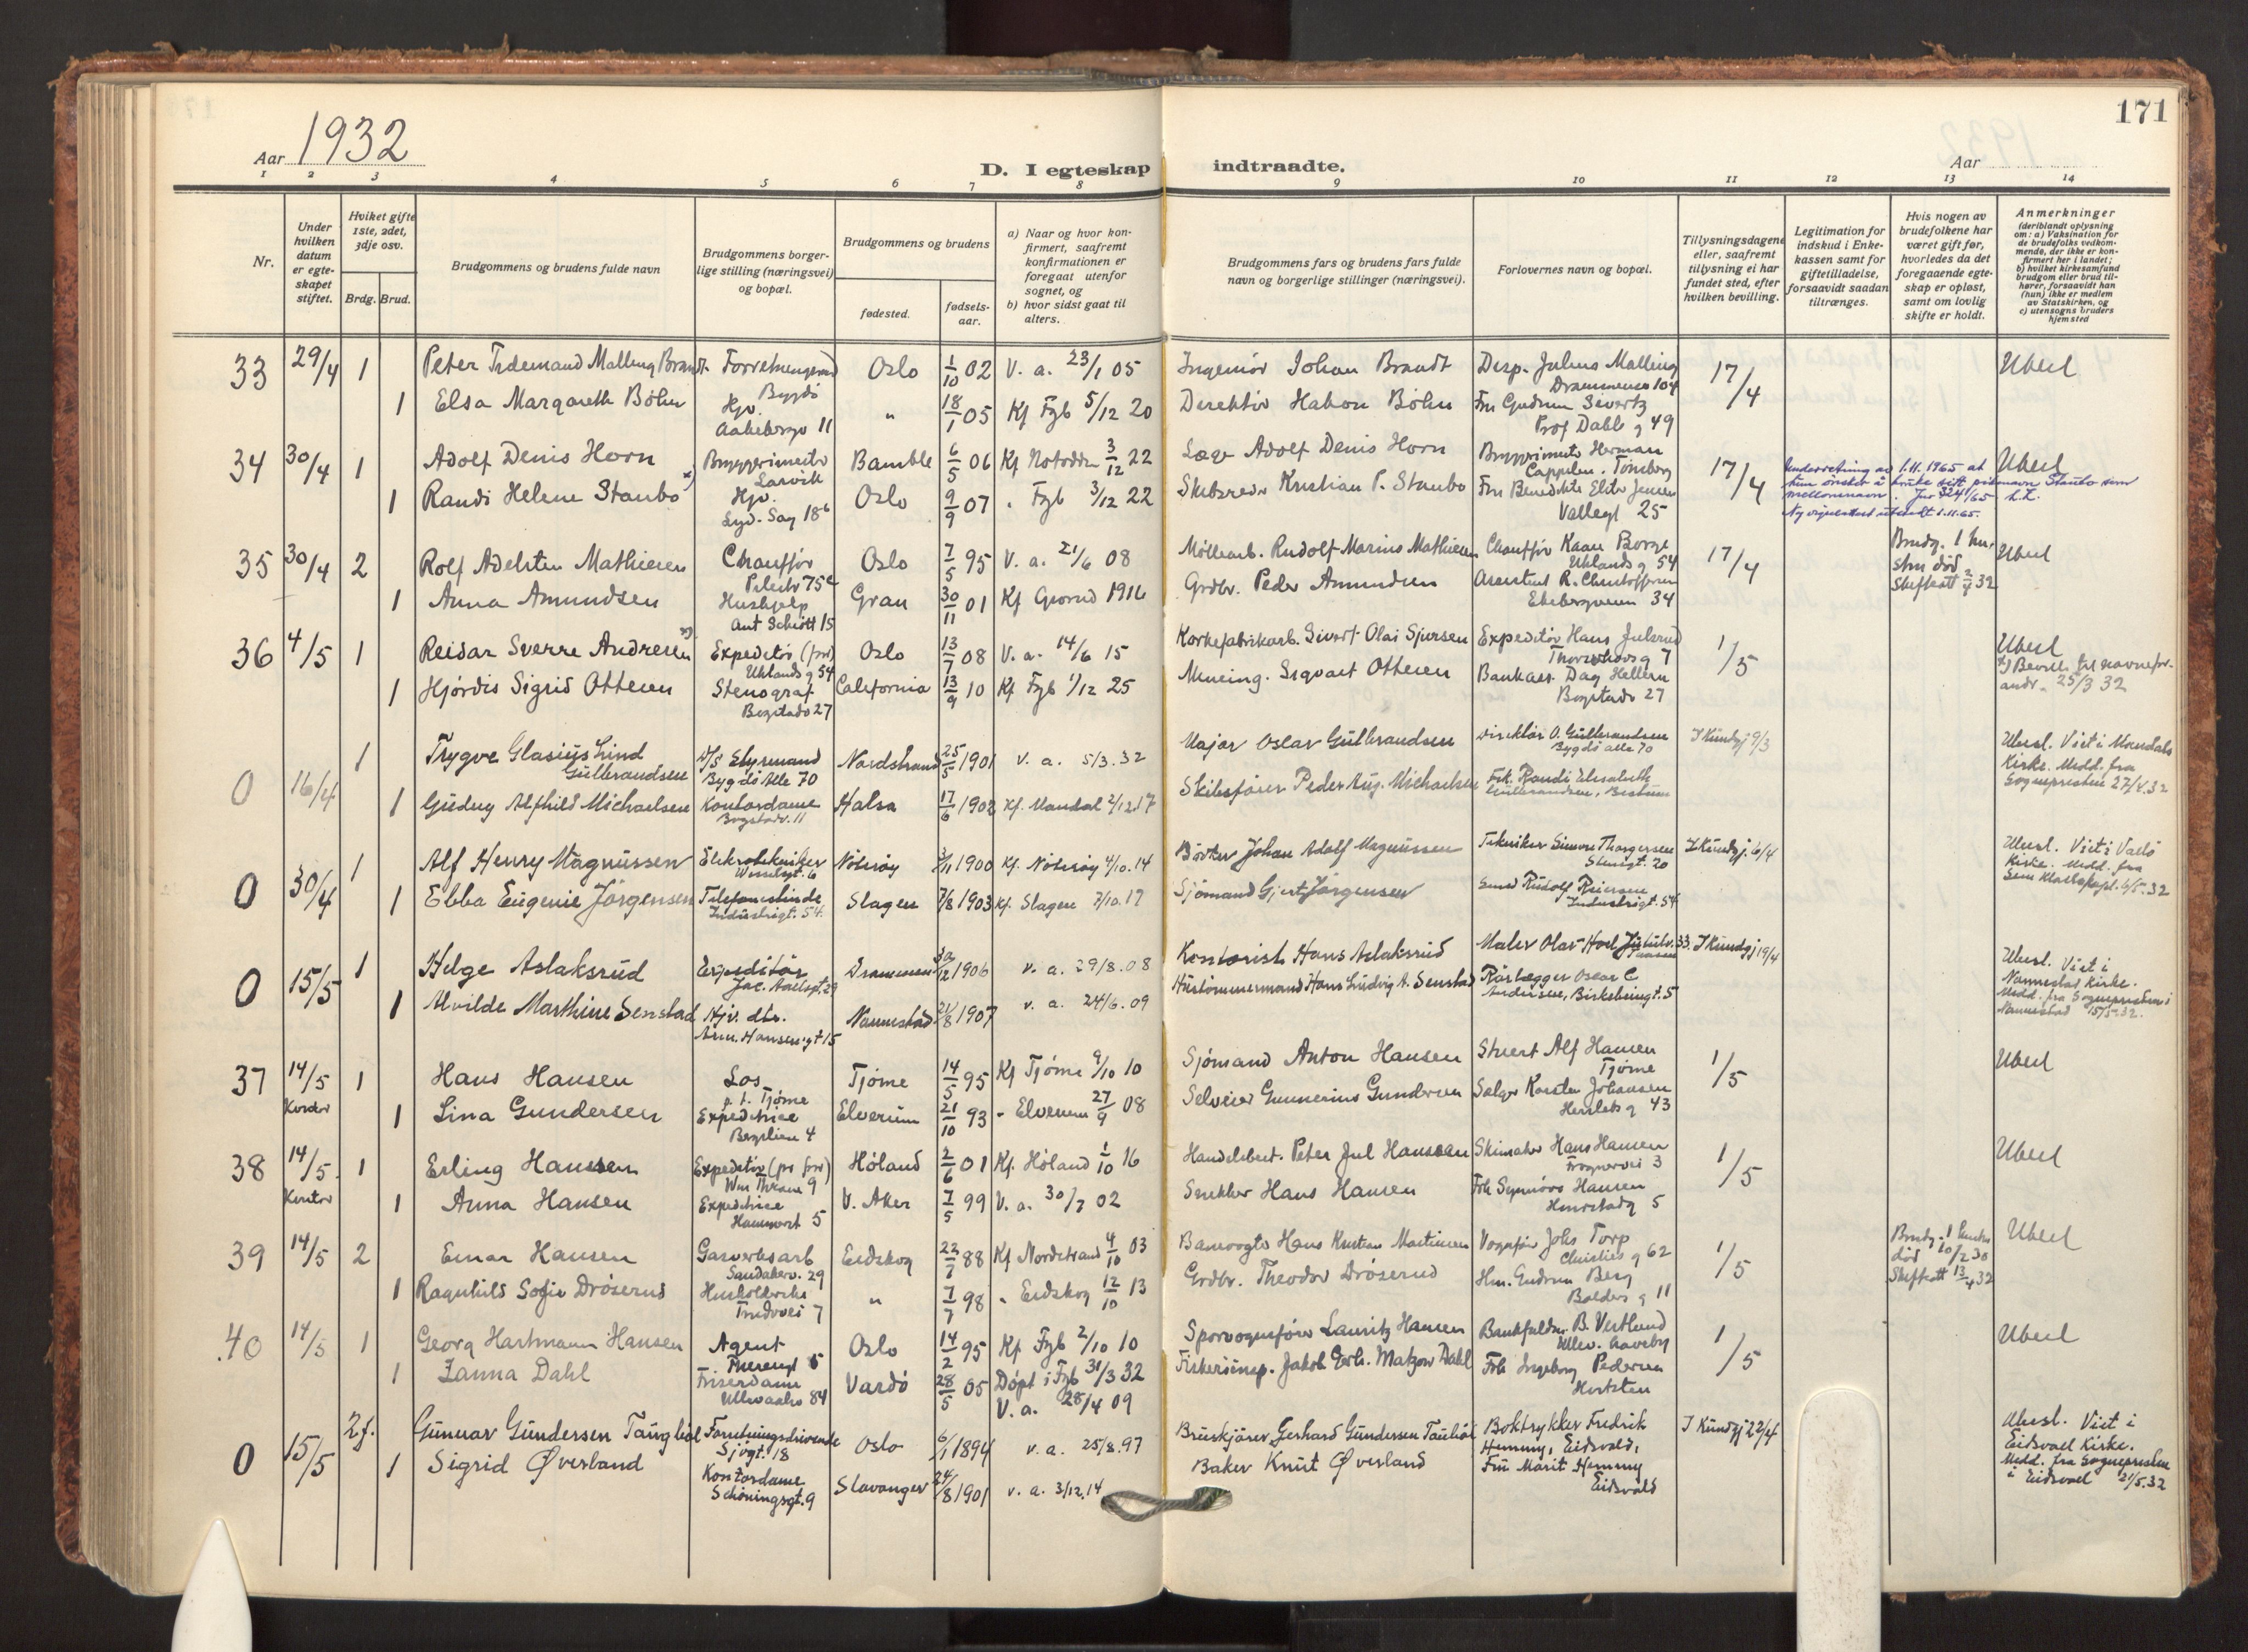 171
Aar 1932
D. I egteskap indtraadte.
Aar
1 2 3 4 5 6 7 8 9 10 11 12 13 14
Nr.
Under hvilken datum er egteskapet stiftet.
Hvilket gifte 1ste, 2det, 3dje osv.
Brdg. Brud.
Brudgommens og brudens fulde navn
Brudgommens borgerlige stilling (næringsvei) og bopæl.
Brudgommens og brudens
fødested.
fødsels-aar.
a) Naar og hvor konfirmert, saafremt konfirmationen er foregaat utenfor sognet, og
b) hvor sidst gaat til alters.
Brudgommens fars og brudens fars fulde navn og borgerlige stillinger (næringsvei).
Forlovernes navn og bopæl.
Tillysningsdagene eller, saafremt tillysning ei har fundet sted, efter hvilken bevilling.
Legitimation for indskud i Enkekassen samt for giftetilladelse, forsaavidt saadan tiltrænges.
Hvis nogen av brudefolkene har været gift før, hvorledes da det foregaaende egteskap er opløst, samt om lovlig skifte er holdt.
Anmerkninger (deriblandt oplysning om: a) Vaksination for de brudefolks vedkommende, der ikke er konfirmert her i landet; b) hvilket kirkesamfund brudgom eller brud tilhører, forsaavidt han (hun) ikke er medlem av Statskirken, og c) utensogns bruders hjemsted
33 29/4 1 Peter Tidemand Malling Brandt Forretningsmand Bygdö Oslo 1/10 02 V. a. 23/1 05 Ingeniör Johan Brandt Disp. Julius Malling Drammensv 104 17/4 Ubesl
1 Elsa Margarethe Böhn Hjv. Aakebergv 11 " 18/1 05 Kf Fgb 5/12 20 Direktör Hakon Böhn Fru Gudrun Sivertz Prof Dahls g 49
34 30/4 1 Adolf Denis Horn Bryggerimester Larvik Bamble 6/5 06 Kf Notodden 3/12 22 Læge Adolf Denis Horn Bryggerimester Herman Cappelen. Tönsberg 17/4 Ubesl
Underretning av 1.11.1965 at hun ønsker å bruke sitt pikenavn Staubo som mellomnavn. Jnr 324/65
Ny vigselattest utstedt 1.11.65.
1 Randi Helene Staubo x) Hjv. Lyd. Sag 18b Oslo 9/9 07 " Fgb 3/12 22 Skibsreder Kristian P. Staubo Fru Benedikte Elise Jensen Vallegt 25
35 30/4 2 Rolf Adelsten Mathiesen Chaufför Pilestr 75c Oslo 7/5 95 V. a. 21/6 08 Möllearb. Rudolf Marius Mathiesen Chaufför Kaare Borge Uhlands g 54 17/4 Brudg. 1 hustru död Skifteatt 2/4 32 Ubesl
1 Anna Amundsen Hushjelp Ant Schiött 15 Gran 30/11 01 Kf Grorud 1916 Grdbr. Peder Amundsen Assistent R. Christoffersen Ekebergveien 34
36 4/5 1 Reidar Sverre Andresen x) Expeditör (fri) Uhlands g 54 Oslo 13/7 08 V. a. 14/6 15 Korkefabrikarb. Sivert Olai Sjursen Expeditör Hans Julsrud Thorshovsg 7 1/5 Ubesl
x) Bevill. til navneforandr. 25/3 32
1 Hjördis Sigrid Ottesen Stenograf Bogstadv 27 California 13/9 10 Kf Fgb 1/12 25 Mineing. Sigvart Ottesen Bankass. Dag Hellern Bogstadv 27
0 16/4 1 Trygve Glasius Lind Gulbrandsen D/S Styrmand Bygdö Alle 70 Nordstrand 25/5 1901 v. a. 5/3.32 Major Oscar Gulbrandsen Direktör O. Gulbrandsen Bygdö alle 70 I Kundgj 9/3 Ubesl. Viet i Mandals Kirke. Medd. fra Sognepresten 27/4.32
1 Gudny Alfhild Michaelsen Kontordame Bogstadv. 11 Halsa 17/6 1902 Kf. Mandal 2/12.17 Skibsfører Peder Aug. Michaelsen Frk. Randi Elisabeth Gulbrandsen, Bestum
0 30/4 1 Alf Henry Magnussen Elektrotekniker Wesselsgt. 6 Nötteröy 3/11 1900 Kf. Nötteröy 4/10.14 Bödker Johan Adolf Magnussen Tekniker Simon Thorgersen Stensgt. 20 I Kundgj. 6/4 Ubesl. Viet i Vallö Kirke. Medd. fra Sem Klokkerkapl. 6/5.32
1 Ebba Eugenie Jörgensen Telefonistinde Industrigt. 54 Slagen 7/8 1903 Kf. Slagen 7/10.17 Sjömand Gjert Jörgensen Smed Rudolf Reiersen Industrigt. 54
0 15/5 1 Helge Aslaksrud Expeditör Jac. Aallsgt. 29 Drammen 30/12 1906 v. a. 29/8.08 Kontorist Hans Aslaksrud Maler Olav Hoel Jutulv. 33. I Kundgj 19/4 Ubesl. Viet i Nannestad Kirke. Medd. fra Sognepresten i Nannestad 15/5.32.
1 Alvilde Marthine Senstad Hjv. dtr. Arm. Hansensgt 15 Nannestad 21/8 1907 v. a. 24/6.09 Hustömmermand Hans Ludvig A. Senstad Rørlægger Oscar C Andersen, Birkebeinergt. 5
37 14/5 Kontor 1 Hans Hansen Los p. t. Tjöme Tjöme 14/5 95 Kf Tjöme 9/10 10 Sjömand Anton Hansen Stuert Alf Hansen Tjöme 1/5 Ubesl
1 Lina Gundersen Expeditrice Bergslien 4 Elverum 21/10 93 " Elverum 27/9 08 Selveier Gunnerius Gundersen Selger Karsten Johansen Herslebs g 43
38 14/5 Kontor 1 Erling Hanssen Expeditör (pr fri) Wm Thrane 9 Höland 2/6 01 Kf. Höland 1/10 16 Handelsbest. Peter Jul Hanssen Skimaker Hans Hansen Frognervei 3 1/5 Ubesl
1 Anna Hansen Expeditrice Hammerst 5 V. Aker 7/5 99 V. a. 30/7 02 Snekker Hans Hansen Frk Synnöve Hansen Hmrstadg 5
39 14/5 2 Einar Hansen Gasverksarb Sandakerv. 29 Eidskog 22/7 88 Kf Nordstrand 4/10 03 Banevogter Hans Kristian Martinsen Vognför Johs Torp Christies g 62 1/5 Brudg. 1 hustru död 10/2 30 Skifteatt 13/4 32 Ubesl
1 Ragnhild Sofie Dröserud Husholderske Trudvei 7 " 7/7 98 " Eidskog 12/10 13 Grdbr. Theodor Dröserud Hm. Gudrun Berg Balders g 11
40 14/5 1 Georg Hartmann Hansen Agent Theresesgt 5 Oslo 14/2 95 Kf Fgb 2/10 10 Sporvognsfører Lauritz Hansen Bankfuldm. B. Vestlund Ullev. haveby 1/5 Ubesl
1 Zanna Dahl Friserdame Ullevaalsv 84 Vardö 28/5 05 Döpt i Fgb 31/3 32 V. a. 28/4 09 Fiskeriinsp. Jakob Gerh. Matzow Dahl Frk Ingeborg Pedersen
0 15/5 2 f. Gunnar Gundersen Tangböl Forretningsdrivende Sjögt. 18 Oslo 6/1 1894 v. a. 25/8.97 Bruskjører Gerhard Gundersen Boktrykker Fredrik Hemmy, Eidsvold, I Kundgj 22/4 Ubesl. Viet i Eidsvoll Kirke. Medd. fra Sognepresten i Eidsvoll 21/5.32
1 Sigrid Øverland Kontordame Schöningsgt. 9 Stavanger 24/8 1901 v. a. 3/12.14 Baker Knut Øverland Fru Marit Hemmy Eidsvold